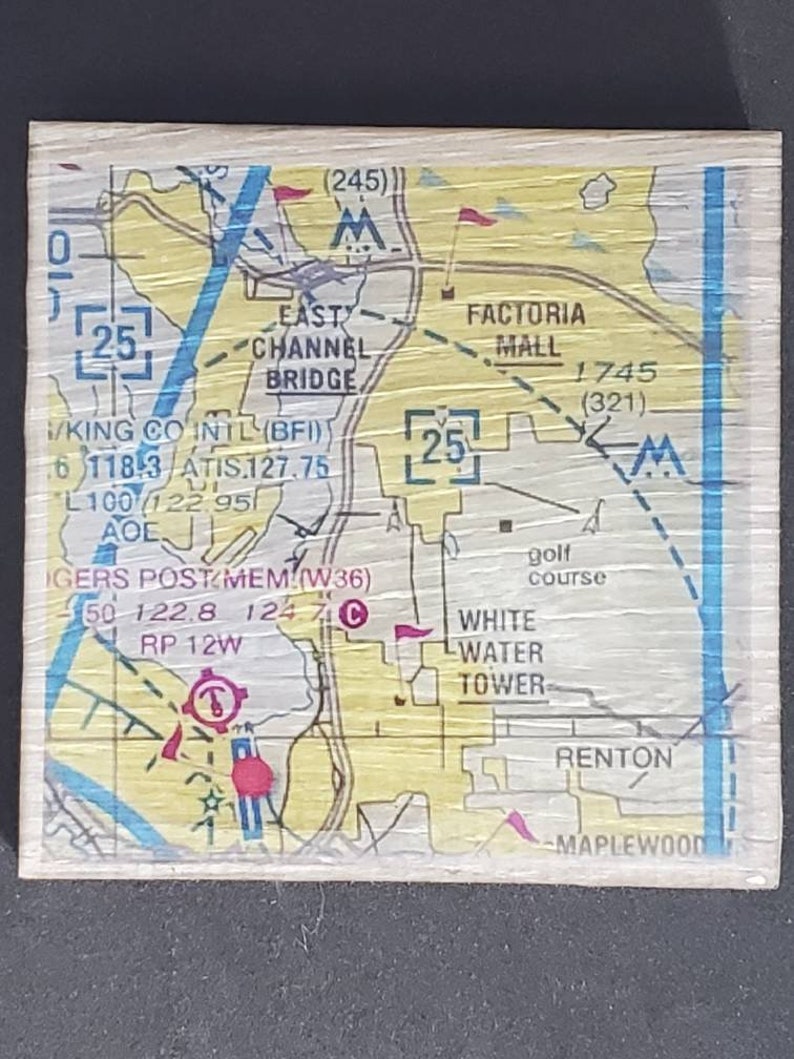 (245)
25
EAST
CHANNEL
BRIDGE
FACTORIA
MALL
1745
(321)
/KING CO INT'L (BFI)
.6 118.3 ATIS 127.75
L 100 122.95
AOE
25
golf
course
GERS POST/MEM (W36)
- 50 122.8 124.7 C
RP 12W
WHITE
WATER
TOWER
RENTON
MAPLEWOOD